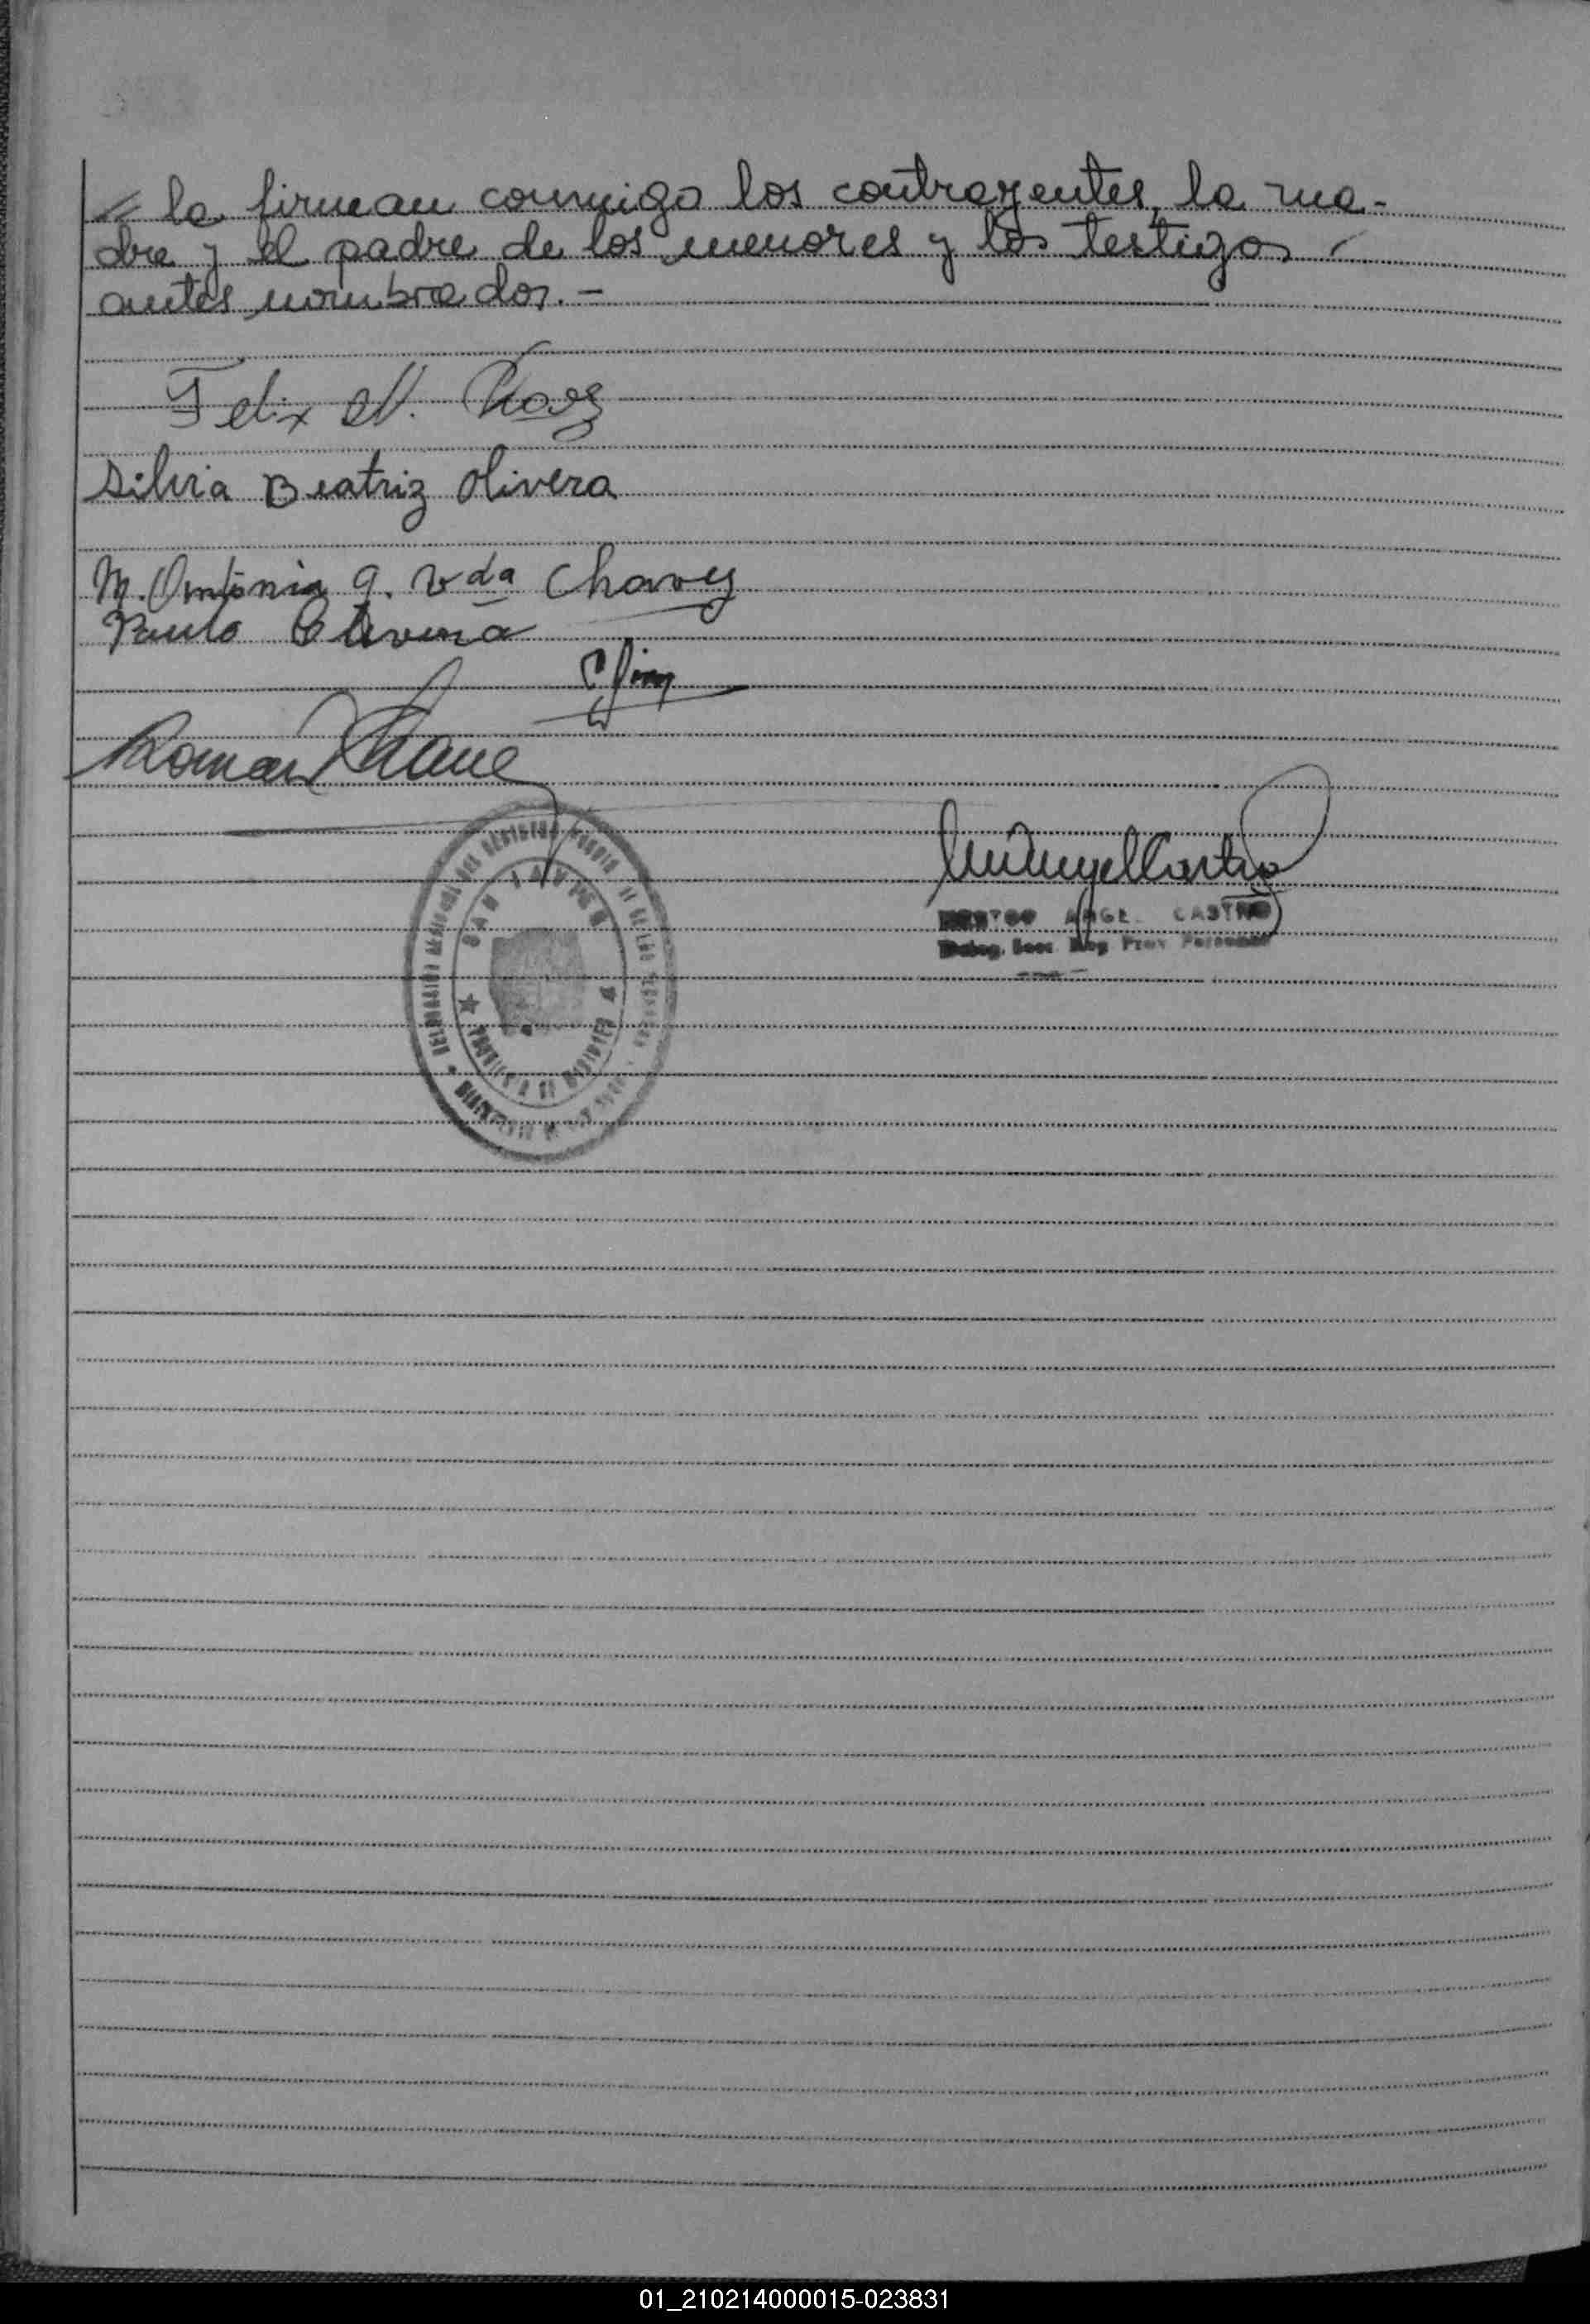 la firman conmigo los contrayentes, la ma-
dre y el padre de los menores y los testigos
antes nombrados.-
Felix N.
Silvia Beatriz Olivera
M. Antonia G. Vda Chavez
Paulo Olivera
Roman
ANGEL CASTRO
SAN
01_210214000015-023831